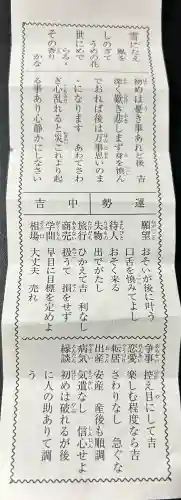 雪にたえ
風を
しのぎて
うめの花
世にめで
らるゝ
その香り
かな
初めは憂き事あれど後 吉
深く歎き悲しまず身を慎ん
でおれば後は万事思いのま
ゝになります あわてさわ
ぎ心乱れると災これより起
る事あり心静かにしなさい
運勢
中吉
願望 おそいが後に叶う
口舌を慎みてよし
待人 おそく来る
失物 出でがたし
旅行 ひかえて吉 利なし
商売 扱うて 損をせず
学問 早目に目標を定めよ
相場 大丈夫 売れ
争事 控え目にして吉
恋愛 楽しむ程度なら吉
転居 さわりなし 急ぐな
出産 安産 産後も順調
病気 気遣なし 信心せよ
縁談 初めは破れるが後
に人の助ありて調
う